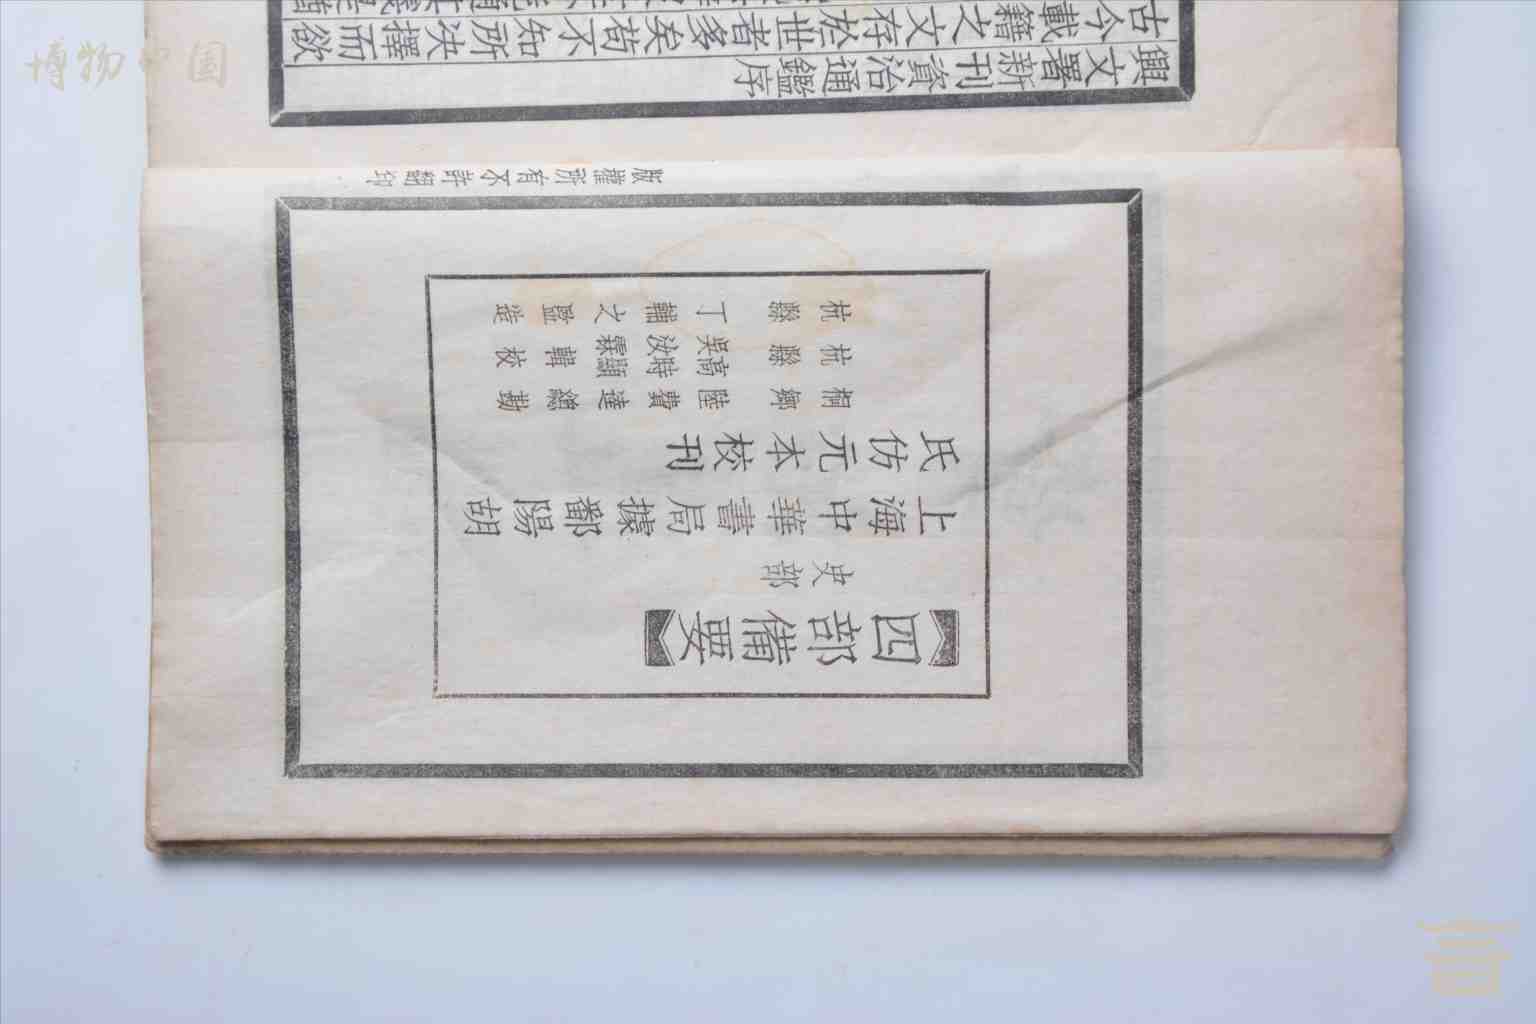 四部備要
史部
上海中華書局據鄱陽胡
氏仿元本校刊
桐鄉 陸費逵 總勘
杭縣 高時顯 吳汝霖 輯校
杭縣 丁輔之 監造
版權所有不許翻印
興文署新刊資治通鑑序
古今載籍之文存於世者多矣苟不知所決擇而欲
博物中国